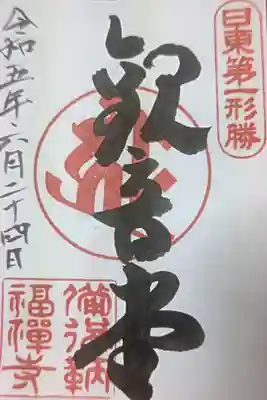 日東第一形勝
観音堂
令和五年六月二十四日
備後鞆
福禅寺